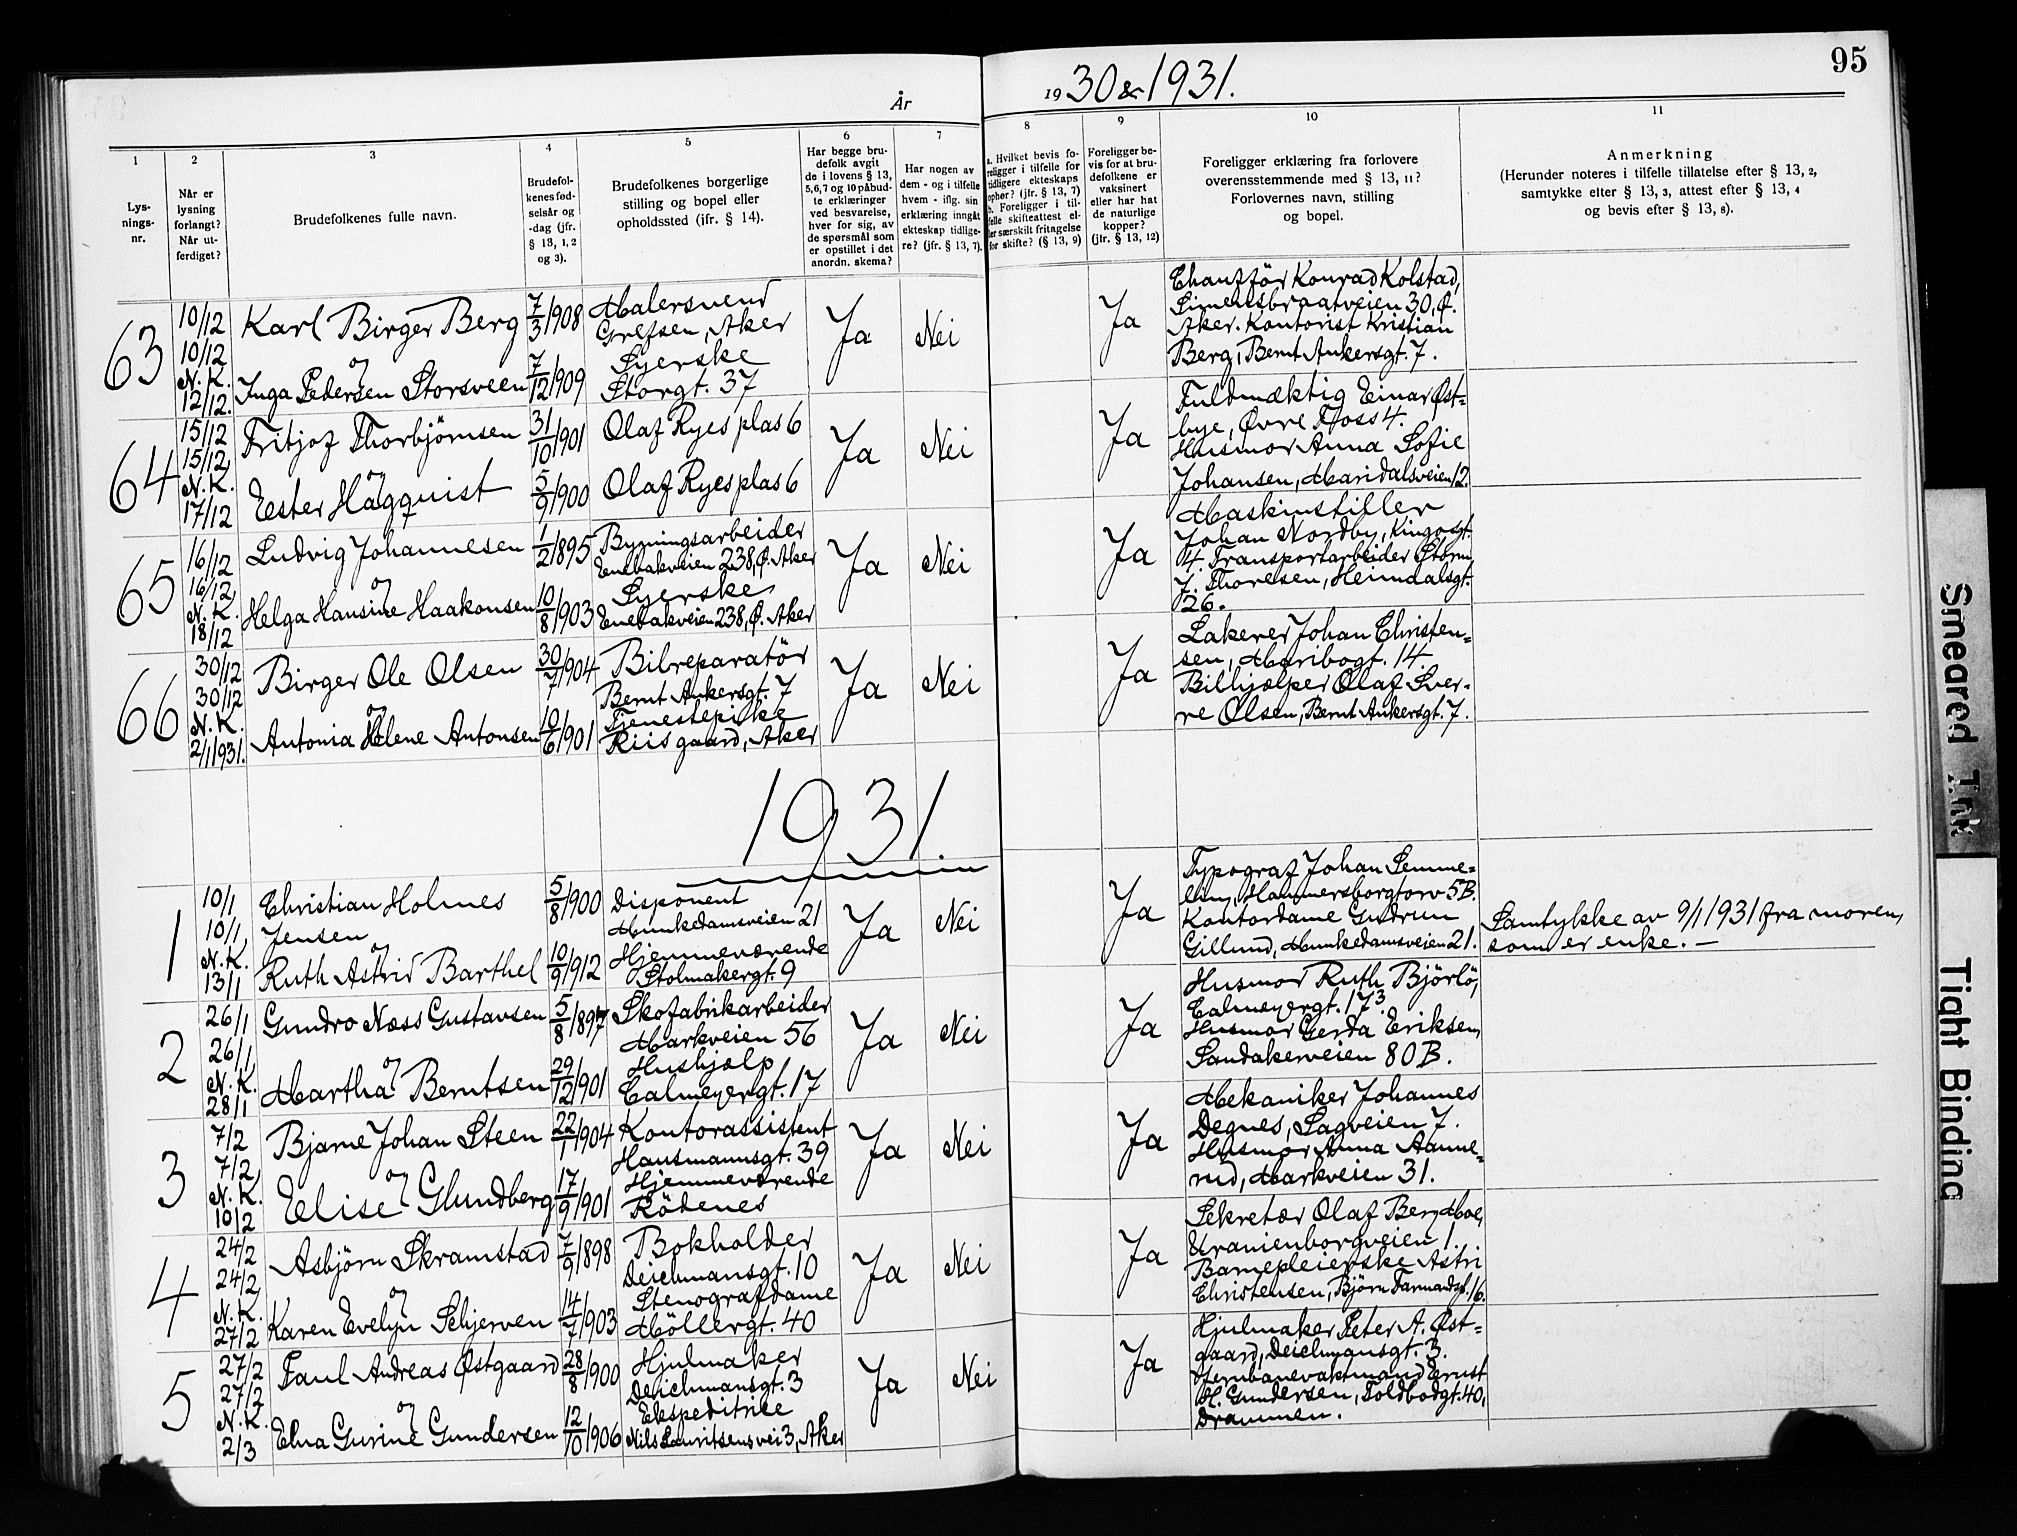 95
År
1930 & 1931.
1
2
3
4
5
6
7
8
9
10
11
Lys-
nings-
nr.
Når er
lysning
forlangt?
Når ut-
ferdiget?
Brudefolkenes fulle navn.
Brudefol-
kenes fød-
selsår og
-dag (jfr.
§ 13, 1, 2
og 3).
Brudefolkenes borgerlige
stilling og bopel eller
opholdssted (jfr. § 14).
Har begge bru-
defolk avgit
de i lovens § 13,
5,6,7 og 10 påbud-
te erklæringer
ved besvarelse,
hver for sig, av
de spørsmål som
er opstillet i det
anordn. skema?
Har nogen av
dem - og i tilfelle
hvem - iflg. sin
erklæring inngåt
ekteskap tidlige-
re? (jfr. § 13, 7).
a. Hvilket bevis fo-
religger i tilfelle for
tidligere ekteskaps
ophør? (jfr. § 13, 7)
b. Foreligger i til-
felle skifteattest el-
ler særskilt fritagelse
for skifte? (§ 13, 9)
Foreligger be-
vis for at bru-
defolkene er
vaksinert
eller har hat
de naturlige
kopper?
(jfr. § 13, 12)
Foreligger erklæring fra forlovere
overensstemmende med § 13, 11?
Forlovernes navn, stilling
og bopel.
Anmerkning
(Herunder noteres i tilfelle tillatelse efter § 13, 2,
samtykke efter § 13, 3, attest efter § 13, 4
og bevis efter § 13, 8).
63
10/12
10/12
N. K.
12/12.
Karl Birger Berg
og
Inga Pedersen Storsveen
7/3 1908
7/12 1909
Malersvend
Grefsen, Aker
Syerske
Storgt. 37
Ja
Nei
Ja
Chauffør Konrad Kolstad,
Simensbraatveien 30, Ø.
Aker. Kontorist Kristian
Berg, Bernt Ankersgt. 7.
64
15/12
15/12
N. K.
17/12
Fritjof Thorbjörnsen
og
Ester Hägquist
31/10 1901
5/9 1900
Olaf Ryes plas 6
Olaf Ryes plas 6
Ja
Nei
Ja
Fuldmæktig Einar Øst=
bye, Øvre Foss 4.
Husmor Anna Sofie
Johansen, Maridalsveien 12.
65
16/12
16/12
N. K.
18/12
Ludvig Johannesen
og
Helga Hansine Haakonsen
1/2 1895
10/8 1903
Bygningsarbeider
Enebakveien 238, Ø. Aker
Syerske
Enebakveien 238, Ø. Aker
Ja
Nei
Ja
Maskinstiller
Johan Nordby, Kingosgt.
14. Transportarbeider Storm
J. Thoresen, Heimdalsgt.
26.
66
30/12
30/12
N. K.
2/1 1931.
Birger Ole Olsen
og
Antonia Helene Antonsen
30/7 1904
10/6 1901
Bilreparatör
Bernt Ankersgt. 7
Tjenestepike
Riis gaard, Aker
Ja
Nei
Ja
Lakerer Johan Christen=
sen, Maribogt. 14.
Bilhjælper Olaf Sver-
re Olsen, Bernt Ankersgt. 7.
1931.
1
10/1
10/1
N. K.
13/1
Christian Holmes
Jensen
og
Ruth Astrid Barthel
5/8 1900
10/9 1912
Disponent
Munkedamsveien 21
Hjemmeværende
Stolmakergt. 9
Ja
Nei
Ja
Typograf Johan Semme=
lin, Hammersborgtorv 5B.
Kontordame Gudrun
Gillund, Munkedamsveien 21.
Samtykke av 9/1 1931 fra moren,
som er enke. —
2
26/1
26/1
N. K.
28/1
Gundro Næss Gustavsen
og
Martha Berntsen
5/8 1897
29/12 1901
Skofabrikarbeider
Markveien 56
Hushjælp
Calmeyergt. 17
Ja
Nei
Ja
Husmor Ruth Björlö,
Calmeyergt. 17³.
Husmor Gerda Eriksen,
Sandakerveien 80 B.
3
7/2
7/2
N. K.
10/2
Bjarne Johan Steen
og
Elise Glundberg
22/1 1904
17/9 1901
Kontorassistent
Hausmannsgt. 39
Hjemmeværende
Rödenes
Ja
Nei
Ja
Mekaniker Johannes
Degnes, Sagveien 7.
Husmor Anna Aanne=
rud, Markveien 31.
4
24/2
24/2
N. K.
27/2
Asbjörn Skramstad
og
Karen Evelyn Schjerven
7/9 1898
14/7 1903
Bokholder
Deichmansgt. 10
Stenografdame
Möllergt. 40
Ja
Nei
Ja
Sekretær Olaf Berg Moe,
Uranienborgveien 1.
Barnepleierske Astri
Christensen, Björn Farmandsgt. 16.
5
27/2
27/2
N. K.
2/3
Paul Andreas Østgaard
og
Elna Gurine Gundersen
28/8 1900
12/10 1906
Hjulmaker
Deichmansgt. 3
Ekspeditrice
Nils Lauritsens vei 3, Aker
Ja
Nei
Ja
Hjulmaker Peter A. Øst=
gaard, Deichmansgt. 3.
Jernbanevaktmand Ernst
H. Gundersen, Toldbodgt. 40,
Drammen.
Smeared Ink
Tight Binding